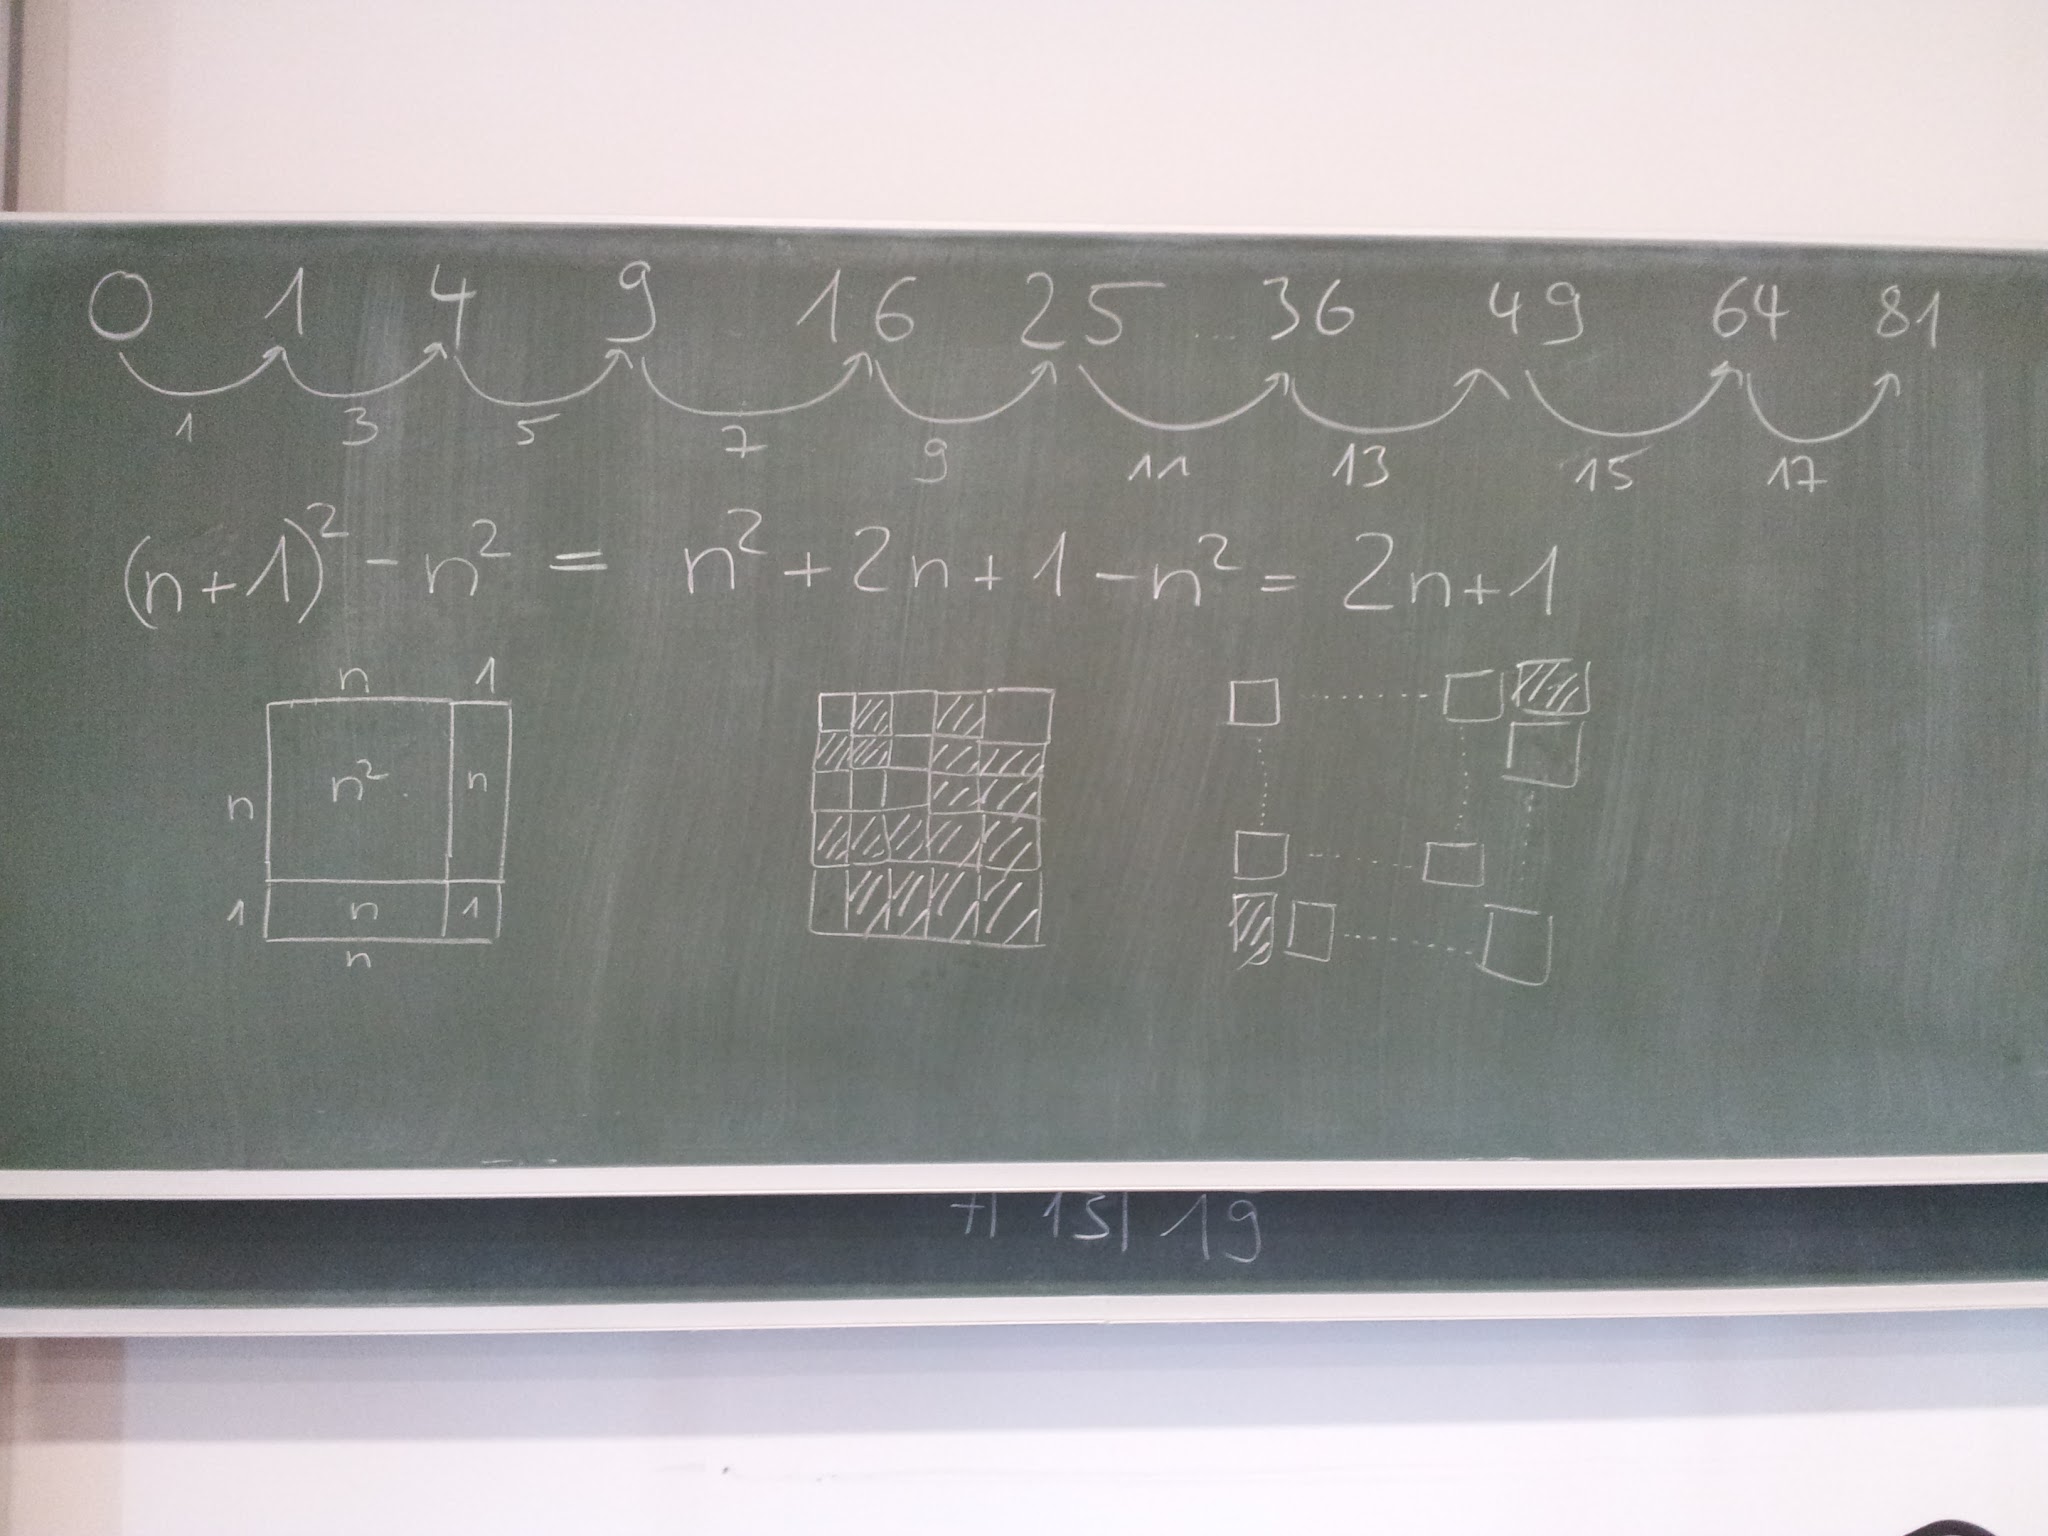 0 1 4 9 16 25 36 49 64 81
1 3 5 7 9 11 13 15 17
(n+1)² - n² = n² + 2n + 1 - n² = 2n+1
n 1
n n² n
1 n 1
n
19